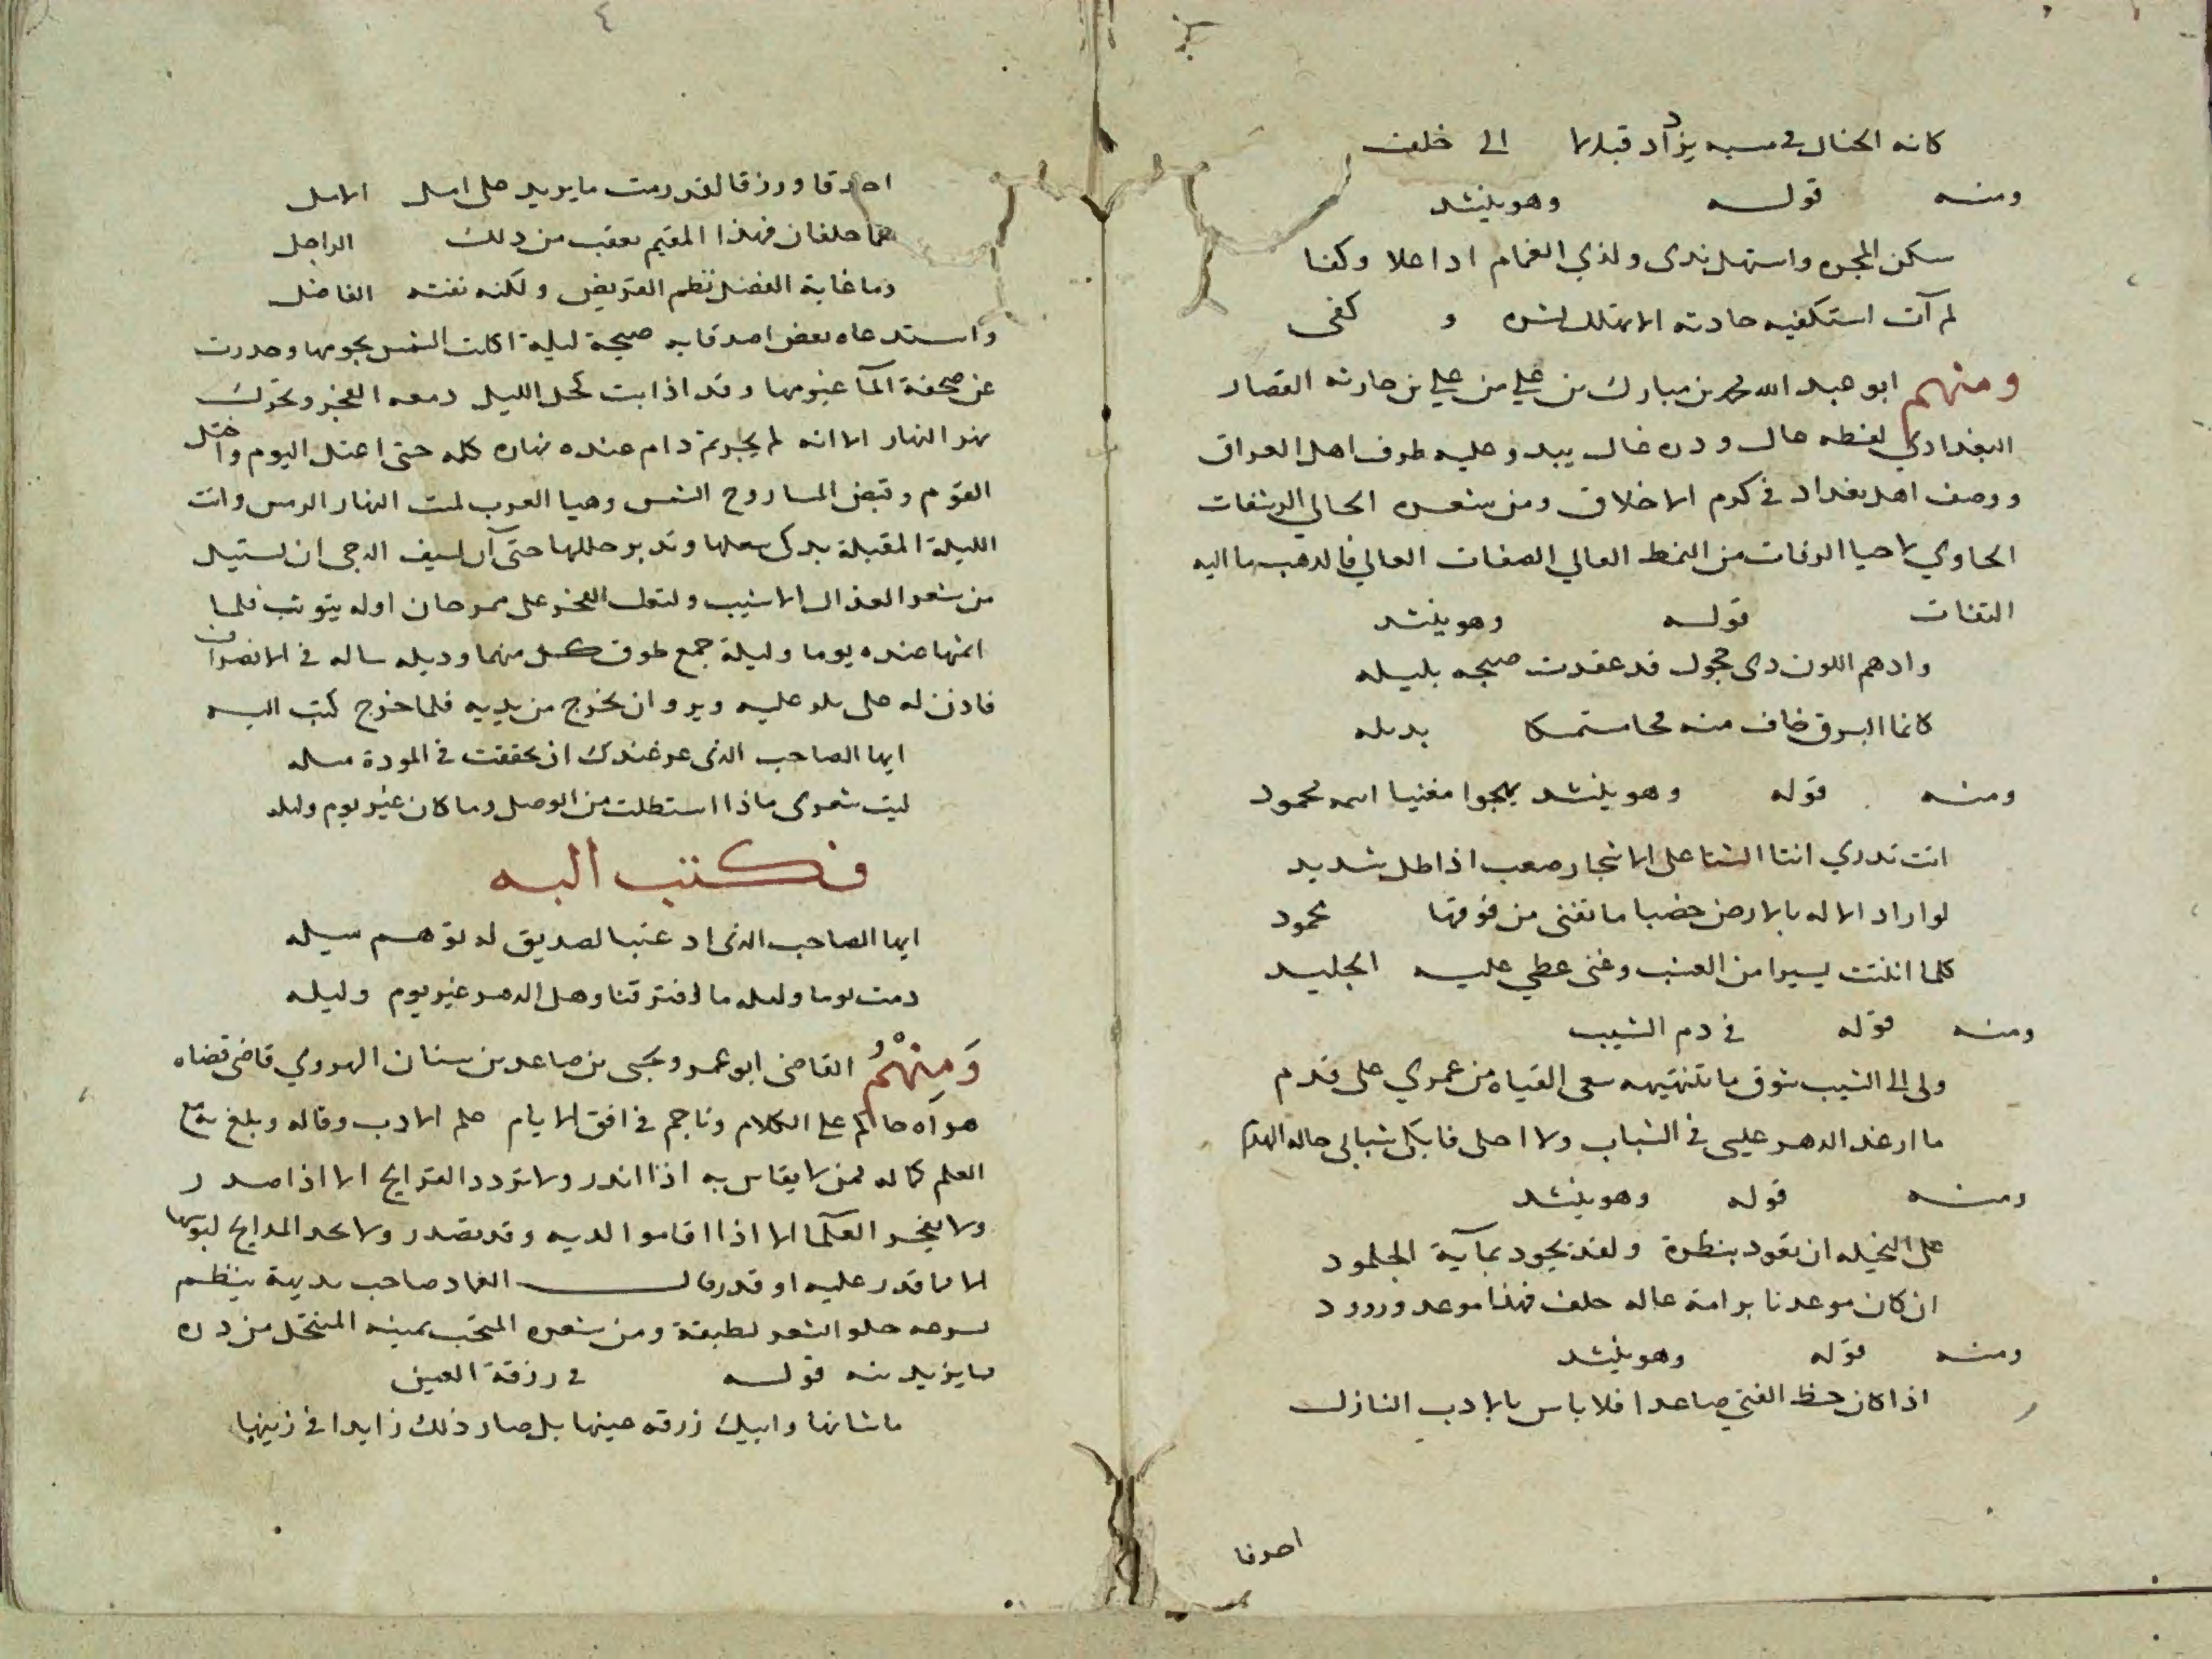 كانه الخنال في مسيه يزداد قبلاما الى خلف
ومنه قوله وهو ينشد
سكن المجره واستهل ندى ولذي الغمام اذا علا وكفا
لم آت استكفيه حادثه الا تهلل بشره و كفى
ومنهم ابو عبد الله محمد بن مبارك بن علي بن علي بن حارثه القصار
البغدادي لفظه حال ودره غال يبدو عليه طرف اهل العراق
ووصف اهل بغداد في كرم الاخلاق ومن شعره الحالي الرشفات
الحاوي لاحيا الرفات من النمط العالي الصفات الغالي فالدهب ما اليه
التفات قوله وهو ينشد
وادهم اللون ذي حجول قد عقدت صبحه بليله
كانما البرق خاف منه فجا مستمسكا بذيله
ومنه قوله وهو ينشد يهجوا مغنيا اسمه محمود
انت تدري انتا الشتا على الاشجار صعب اذا اطل شديد
لو اراد الاله بالارض خصبا ما تغنى من فوقها محمود
كلما انبتت يسيرا من العشب وغنى غطي عليه الجليد
ومنه قوله في ذم الشيب
ولى الى الشيب شوق ما تنتهيه سعى القياه من عمري على قدم
ما ارغد الدهر عليى في الشباب ولا احلى فابكى شبابى حاله الهرم
ومنه قوله وهو ينشد
على البخيله ان تعود بنظرة ولقد يجود بمآية الجلمود
ان كان موعدنا برامة عاله خلف فهذا موعد وورود
ومنه قوله وهو ينشد
اذا كان حظ الفتى صاعدا فلا باس بالادب النازل
احرفا
٤
احرفا ورزقا لقد رمت ما يريد على امل الامل
هما حلفان فهذا المقيم يعقب من ذلك الراحل
وما غاية الفضل نظم القريض ولكنه نفثه الفاضل
واستدعاه بعض اصدقايه صبيحة ليلة اكلت الشمس نجومها وحدرت
عن صحفة المآ غيومها وقد اذابت كحل الليل دمعه الفجر وتحرك
نهر النهار الا انه لم يجر ثم دام عنده نهاره كله حتى اعتل اليوم واختل
القوم وقبض المسا روح الشمس وهيا الغرب لميت النهار الرمس واتت
الليلة المقبلة يدكى شعلها وتدبر حللها حتى آن لسيف الدجى ان يستيل
من شعر القذال الاشيب ولتعلب الفجر على سرحان اوله يتوثب فلما
اتمها عنده يوما وليلة جمع طرف كل منهما وذيله ساله في الانصراف
فاذن له على بلو عليه ويرو ان يخرج من يديه فلما خرج كتب اليه
ايها الصاحب الذى عرغندك ان تحققت في المودة ميله
ليت شعرى ماذا استطلت من الوصل وما كان غير يوم وليله
فكتب اليه
ايها الصاحب الذى اد عتبا لصديق له توهم سيله
دمت يوما وليله ما افترقنا وهل الدهر غير يوم وليله
ومنهم القاضى ابو عمرو يحيى بن صاعد بن سنان الهروي قاضى قضاه
هراه حاكم على الكلام وناجم في افق الايام علم الادب وقاله وبلغ به
العلم كماله فمن لا يقاس به اذا اندر ولا تردد القرايح الا اذا صدر
ولا يفخر العلما الا اذا اقاموا لديه وقد تصدر ولا تحد المدايح لبوتها
الا ما قدر عليه او قدر قال العماد صاحب بديهة ينظم
لسرعه حلو الشعر لطيفة ومن شعره المتخب ثمينه المنتخل من دره
ما يزيد منه قوله في زرقة العين
ما شانها وابيك زرقه عينها بل صار ذلك زايدا في زينها